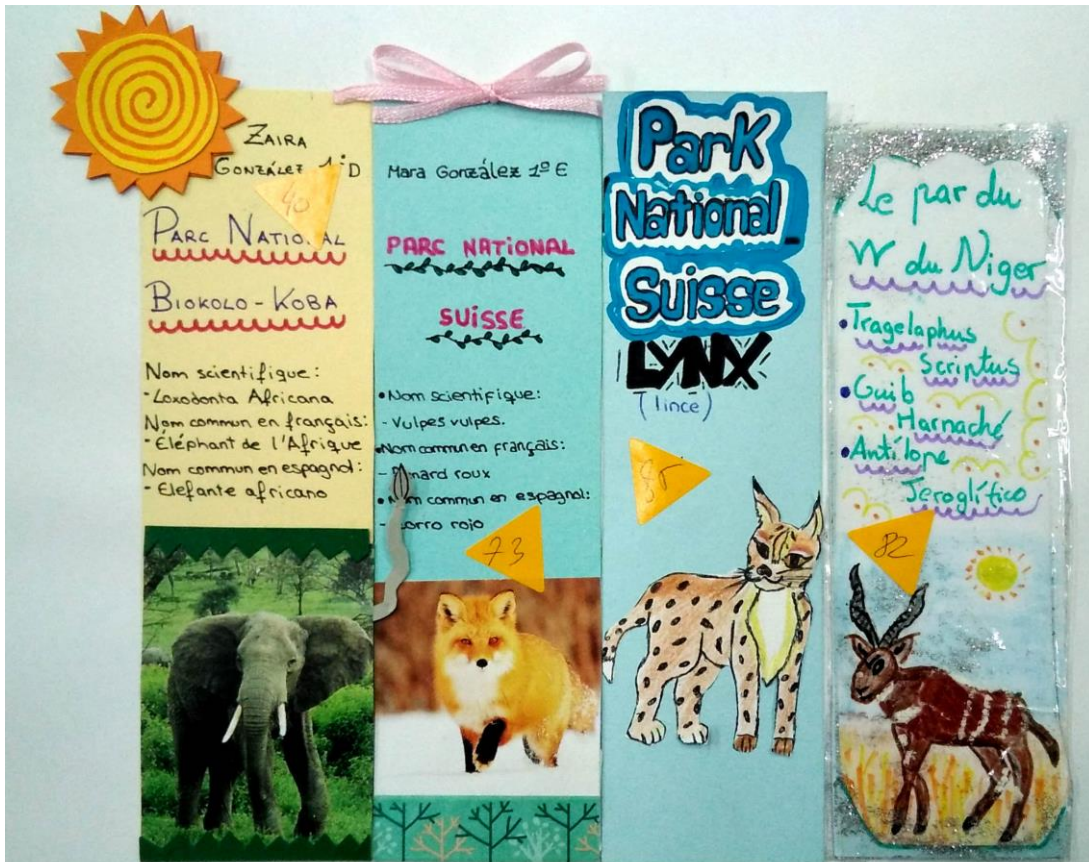 ZAIRA
GONZÁLEZ 1ºD
40
PARC NATIONAL
BIOKOLO-KOBA
Nom scientifique:
-Loxodonta Africana
Nom commun en français:
-Eléphant de l'Afrique
Nom commun en espagnol:
-Elefante africano
Mara González 1º E
PARC NATIONAL
SUISSE
•Nom scientifique:
- Vulpes vulpes.
•Nom commun en français:
- nard roux
• commun en espagnol:
- orro rojo
73
Park
National
Suisse
LYNX
(lince)
Le par du
W du Niger
•Tragelaphus
Scriptus
•Guib
Harnaché
•Antílope
Jeroglífico
82